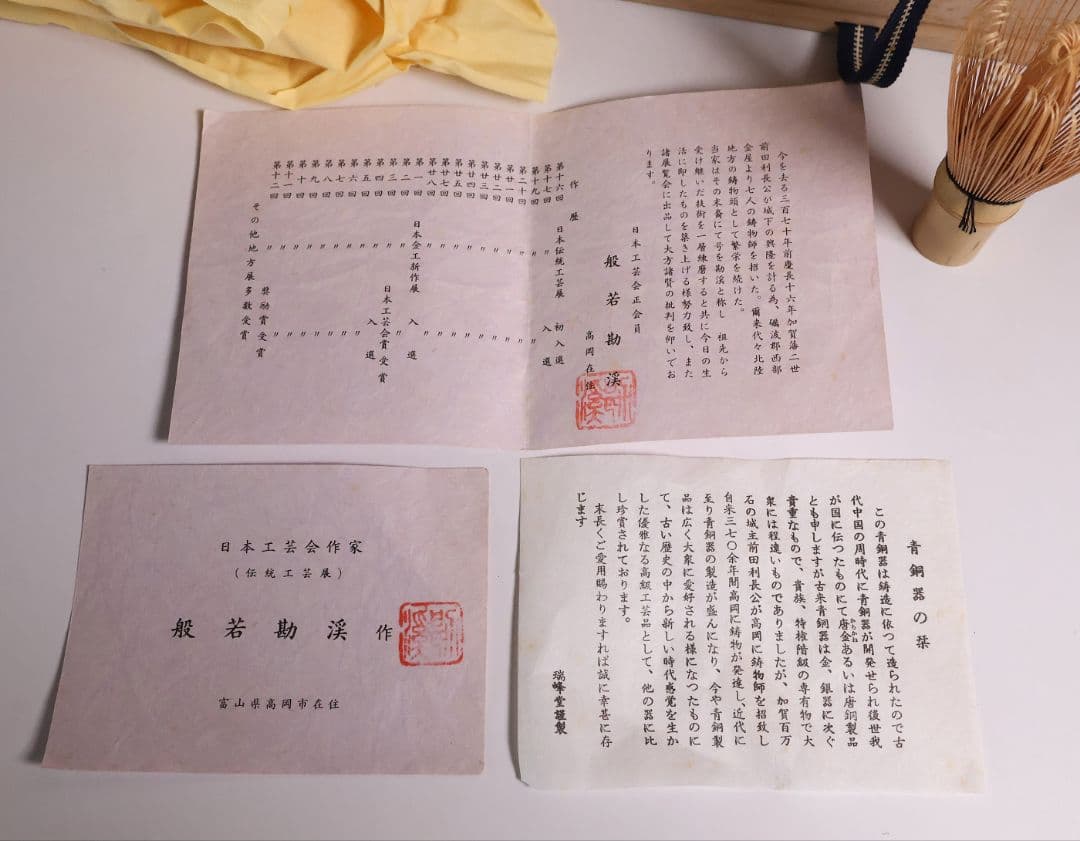 今を去る三百七十年前慶長十六年加賀藩二世
前田利長公が城下の興隆を計る為、礪波郡西部
金屋より七人の鋳物師を招いた。爾来代々北陸
地方の鋳物頭として繁栄を続けた。
当家はその末裔にて号を勘渓と称し 祖先から
受け継いだ技術を一層練磨すると共に今日の生
活に即したものを築き上げる様努力致し、また
諸展覧会に出品して大方諸賢の批判を仰いでお
ります。
日本工芸会正会員
般若勘渓
高岡在住
作歴
第十六回 日本伝統工芸展 初入選
第十七回 〃 入選
第十九回 〃 〃
第二十回 〃 〃
第廿一回 〃 〃
第廿二回 〃 〃
第廿三回 〃 〃
第廿四回 〃 〃
第廿五回 〃 〃
第廿七回 〃 〃
第廿八回 〃 〃
第一回 日本金工新作展 入選
第二回 〃
第三回 〃 日本工芸会賞受賞
第四回 〃 入選
第五回 〃 〃
第六回 〃 〃
第七回 〃 〃
第八回 〃 〃
第九回 〃 〃
第十回 〃 〃
第十一回 〃 〃
第十二回 〃 奨励賞受賞
その他地方展多数受賞
日本工芸会作家
(伝統工芸展)
般若勘渓 作
富山県高岡市在住
青銅器の栞
この青銅器は鋳造に依つて造られたので古
代中国の周時代に青銅器が開発せられ後世我
が国に伝つたものにて唐金あるいは唐銅製品
からかね
とも申しますが古来青銅器は金、銀器に次ぐ
貴重なもので、貴族、特権階級の専有物で大
衆には程遠いものでありましたが、加賀百万
石の城主前田利長公が高岡に鋳物師を招致し
自来三七〇余年間高岡に鋳物が発達し、近代に
至り青銅器の製造が盛んになり、今や青銅製
品は広く大衆に愛好される様になつたものに
て、古い歴史の中から新しい時代感覚を生か
した優雅なる高級工芸品として、他の器に比
し珍賞されております。
末長くご愛用賜わりますれば誠に幸甚に存
じます
瑞峰堂謹製